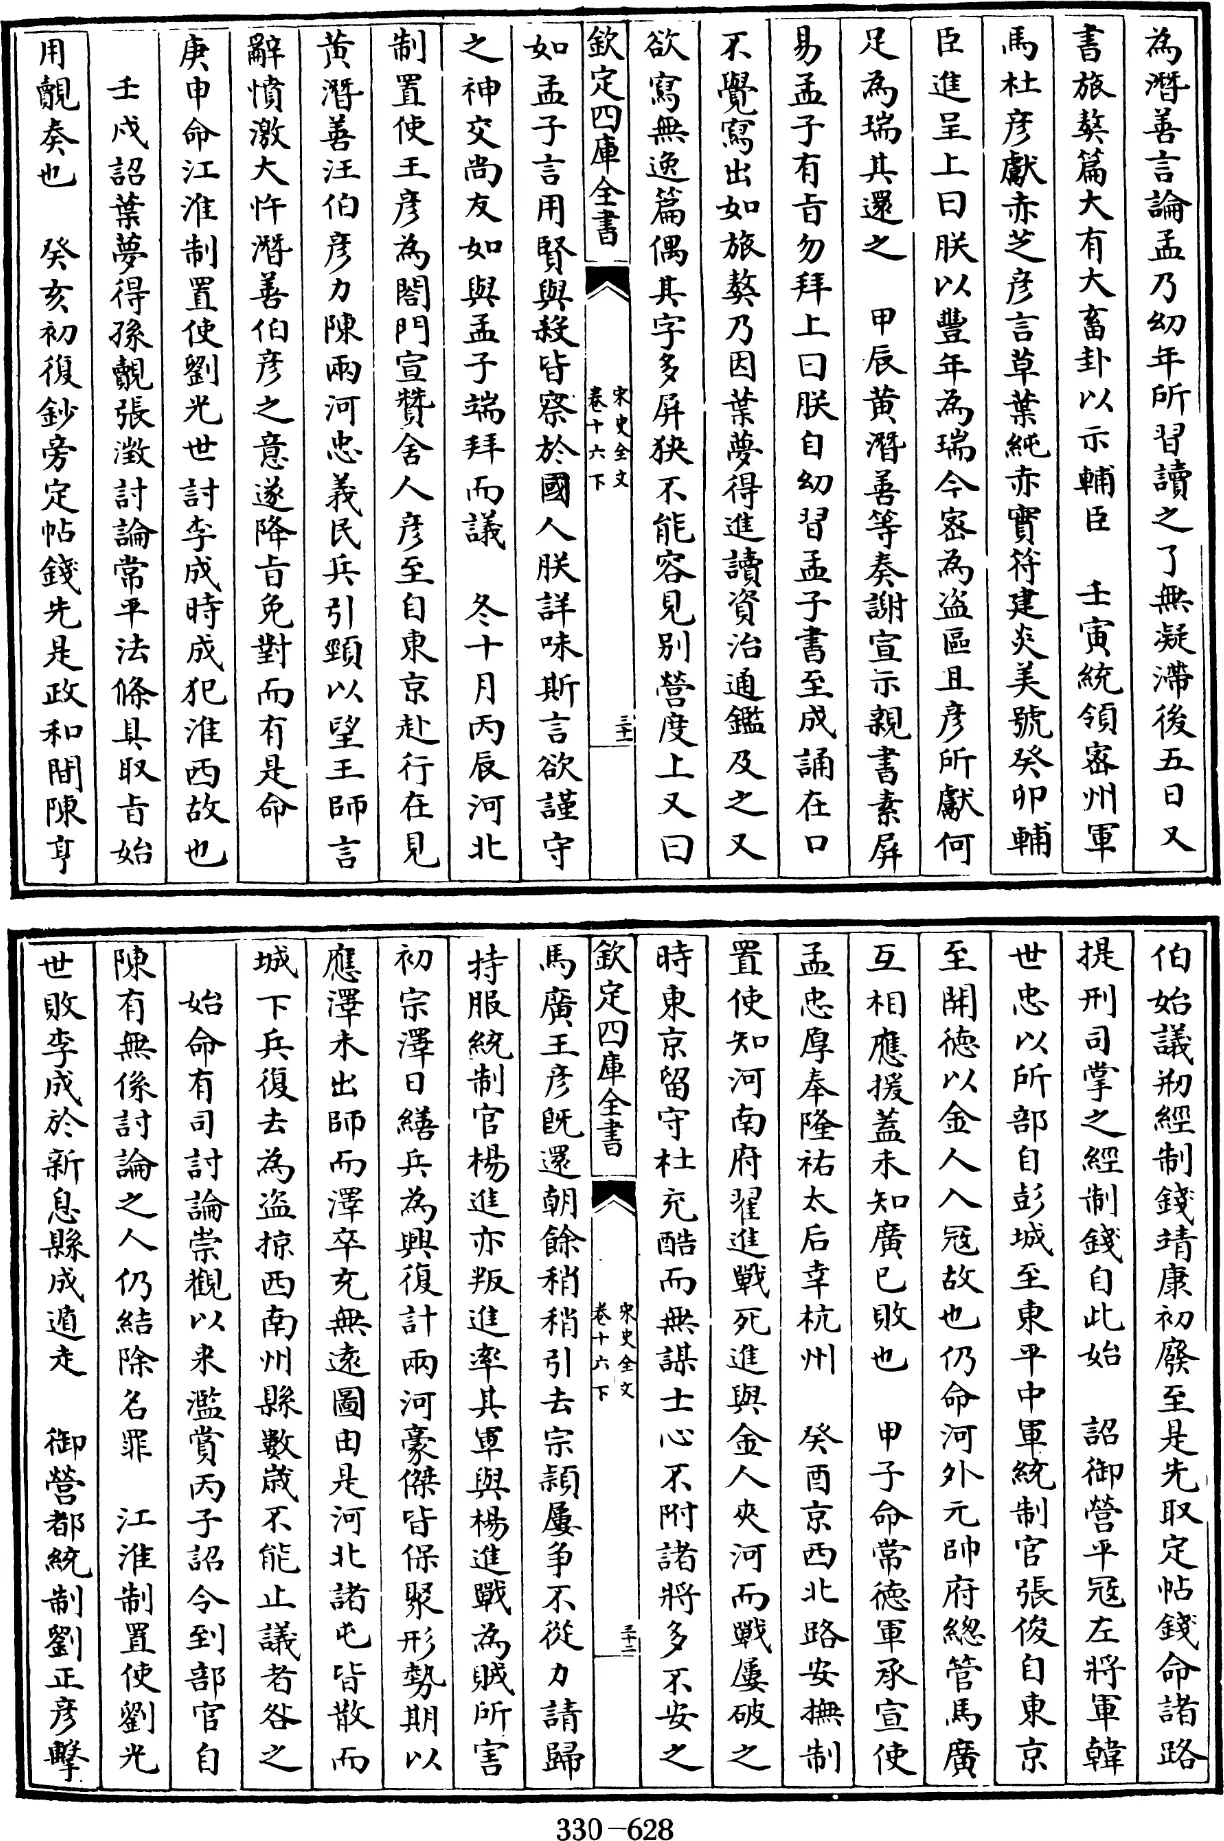 為潛善言論孟乃幼年所習讀之了無凝滯後五日又
書旅獒篇大有大畜卦以示輔臣　壬寅統領密州軍
馬杜彦獻赤芝彦言草葉純赤實符建炎美號癸卯輔
臣進呈上曰朕以豐年為瑞今密為盗區且彦所獻何
足為瑞其還之　甲辰黄潛善等奏謝宣示親書素屏
易孟子有旨勿拜上曰朕自幼習孟子書至成誦在口
不覺寫出如旅獒乃因葉夢得進讀資治通鑑及之又
欲寫無逸篇偶其字多屏狹不能容見别營度上又曰
欽定四庫全書
宋史全文
卷十六下
三十一
如孟子言用賢與殺皆察於國人朕詳味斯言欲謹守
之神交尚友如與孟子端拜而議　冬十月丙辰河北
制置使王彦為閤門宣贊舍人彦至自東京赴行在見
黄潛善汪伯彦力陳兩河忠義民兵引頸以望王師言
辭憤激大忤潛善伯彦之意遂降旨免對而有是命
庚申命江淮制置使劉光世討李成時成犯淮西故也
壬戍詔葉夢得孫覿張澂討論常平法條具取旨始
用覿奏也　癸亥初復鈔旁定帖錢先是政和間陳亨
伯始議刱經制錢靖康初廢至是先取定帖錢命諸路
提刑司掌之經制錢自此始　詔御營平冦左將軍韓
世忠以所部自彭城至東平中軍統制官張俊自東京
至開德以金人入冦故也仍命河外元帥府總管馬廣
互相應援蓋未知廣已敗也　甲子命常德軍承宣使
孟忠厚奉隆祐太后幸杭州　癸酉京西北路安撫制
置使知河南府翟進戰死進與金人夾河而戰屢破之
時東京留守杜充酷而無謀士心不附諸將多不安之
欽定四庫全書
宋史全文
卷十六下
三十二
馬廣王彦既還朝餘稍稍引去宗頴屢争不從力請歸
持服統制官楊進亦叛進率其軍與楊進戰為賊所害
初宗澤日繕兵為興復計兩河豪傑皆保聚形勢期以
應澤未出師而澤卒充無遠圖由是河北諸屯皆散而
城下兵復去為盗掠西南州縣數歲不能止議者咎之
始命有司討論崇觀以來濫賞丙子詔令到部官自
陳有無係討論之人仍結除名罪　江淮制置使劉光
世敗李成於新息縣成遁走　御營都統制劉正彦擊
330-628